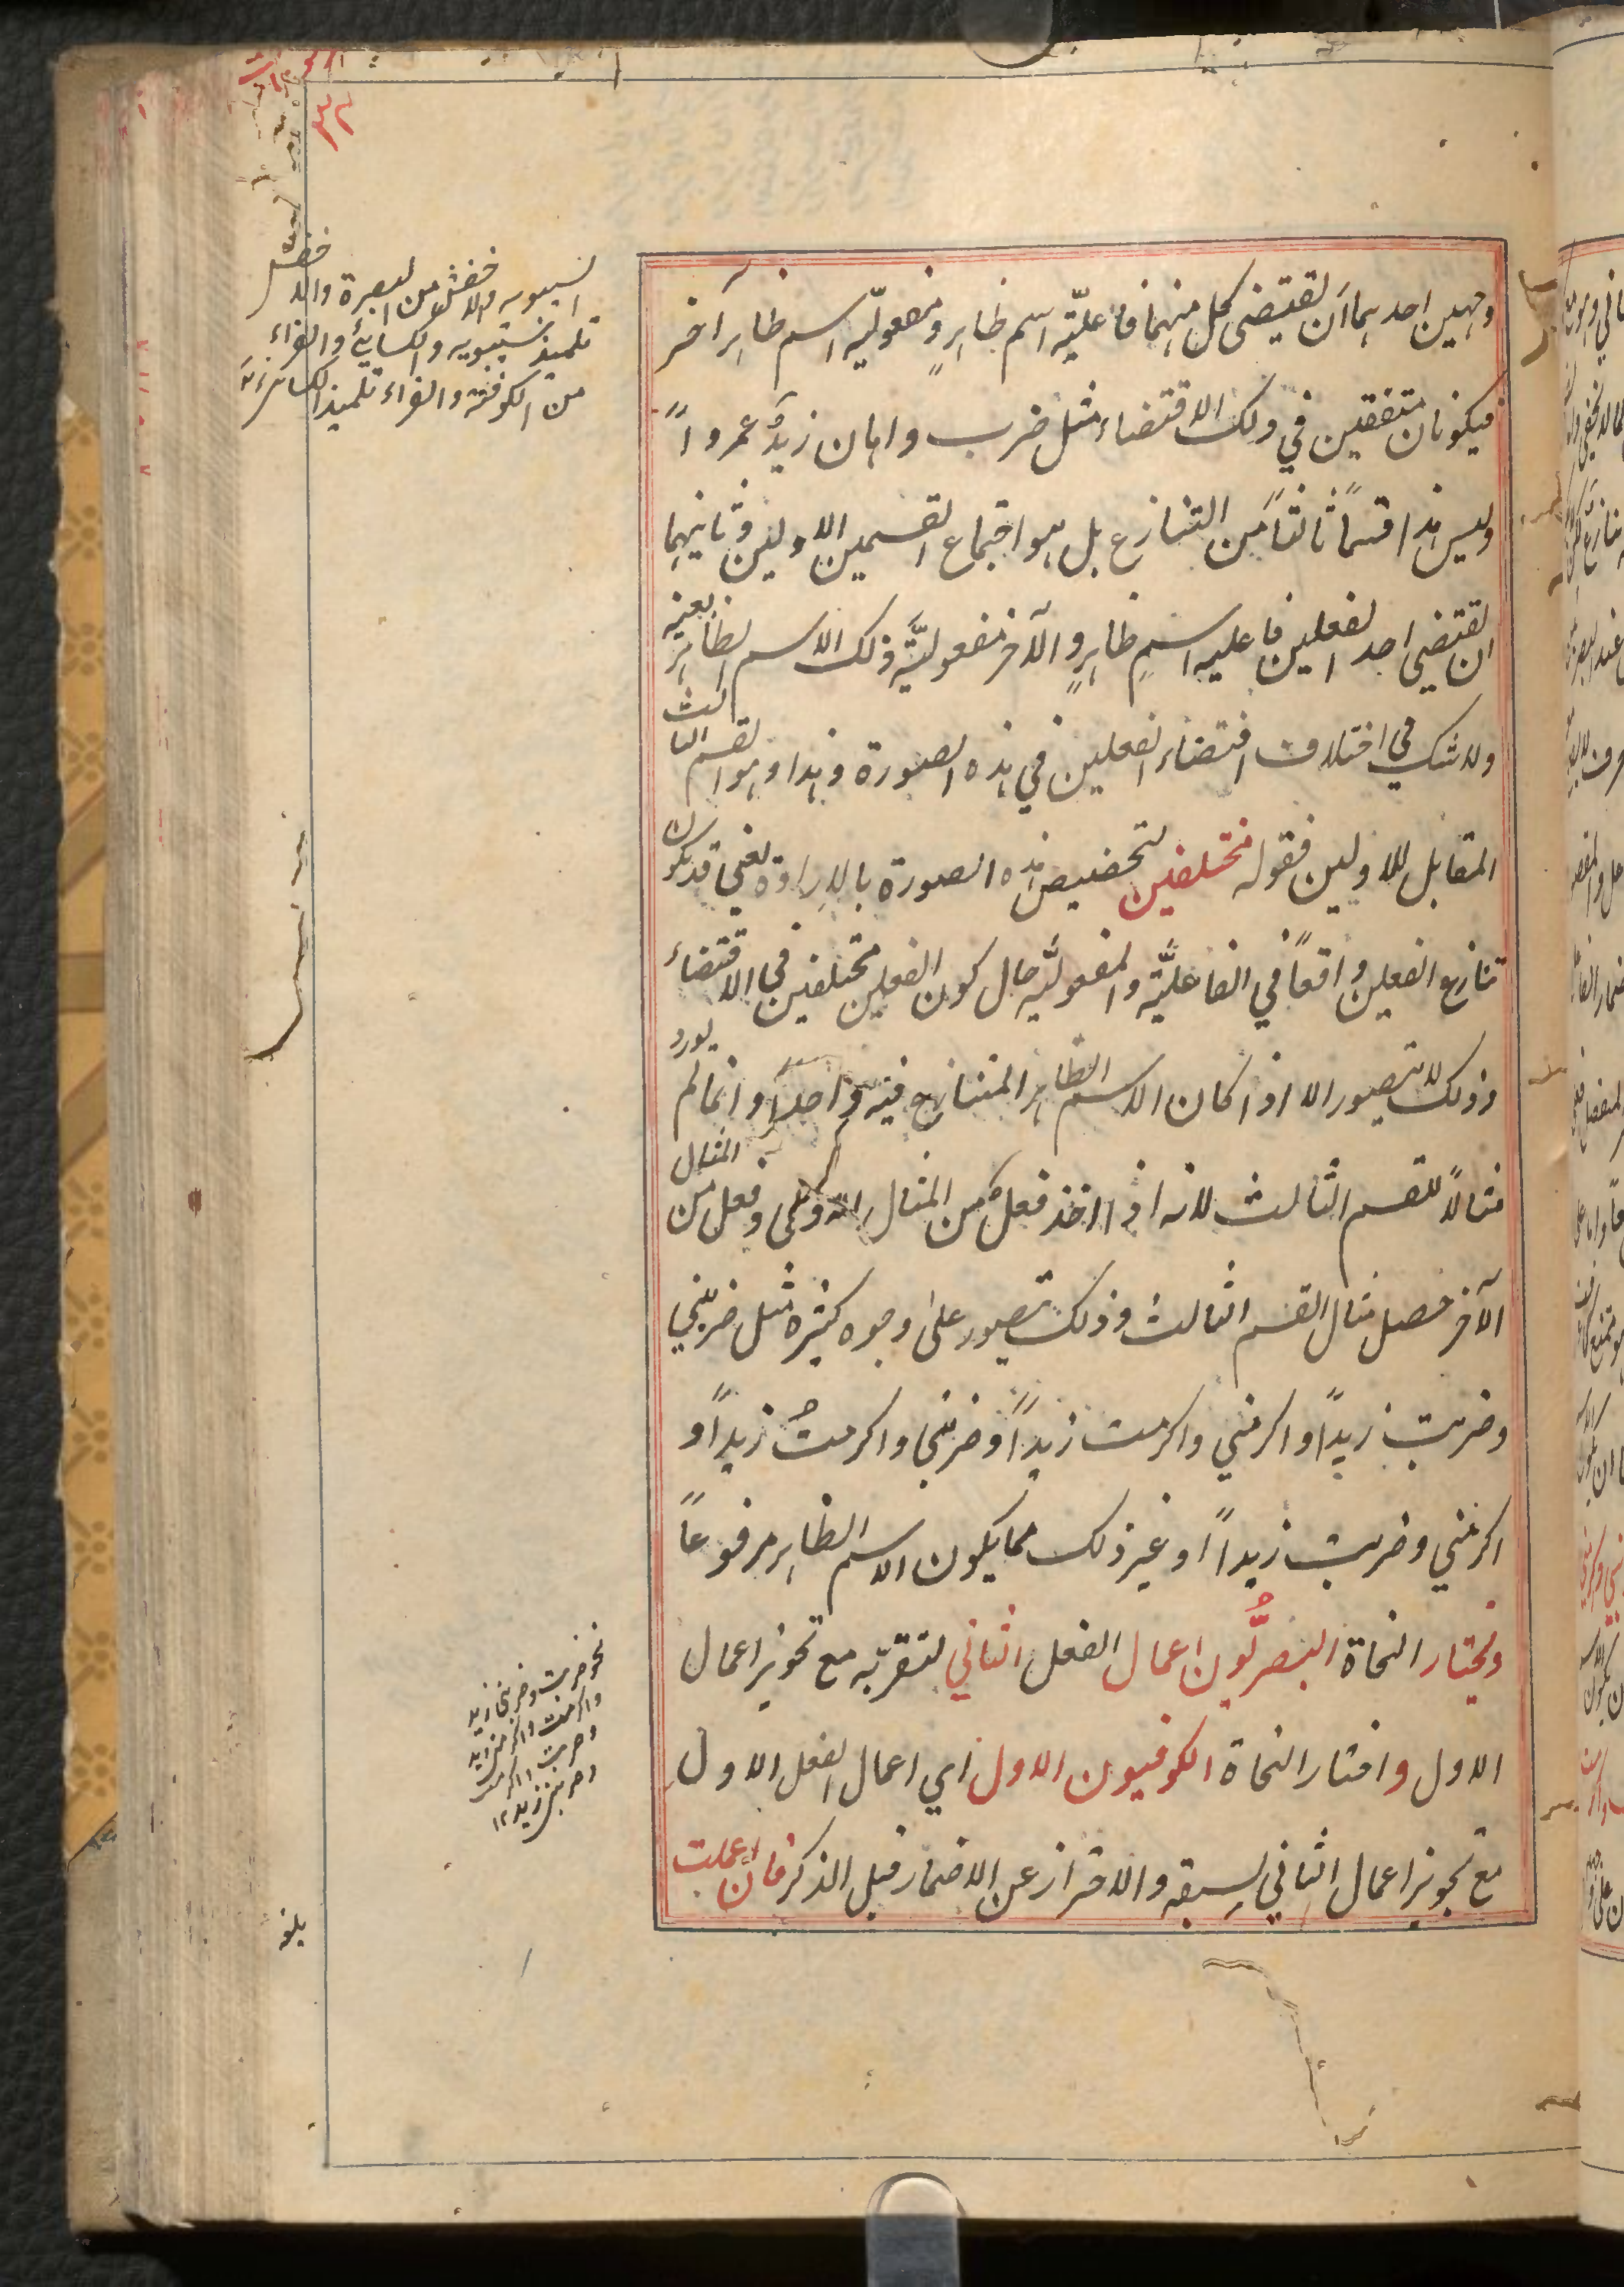 وجهين احدهما ان يقتضى كل منهما فاعليّة اسم ظاهرٍ ومفعوليّة اسم ظاهر آخر
فيكونان متفقين في ذلك الاقتضاء مثل ضرب واهان زيدٌ عمرواً
وليس هذا قسماً ثالثاً من التنازع بل هو اجتماع القسمين الاولين وثانيهما
ان يقتضي احد الفعلين فاعلية اسمٍ ظاهرٍ والآخر مفعوليّة ذلك الاسم الظاهر بعينه
ولا شك في اختلاف اقتضاء الفعلين في هذه الصورة وهذا هو القسم الثالث
المقابل للاولين فقوله مختلفين لتخصيص هذه الصورة بالارادة يعني قد يكون
تنازع الفعلين واقعاً في الفاعليّة والمفعوليّة حال كون الفعلين مختلفين في الاقتضاء
وذلك لا يتصور الا اذا كان الاسم الظاهر المتنازع فيه واحداً وانما لم يورد
مثالاً للقسم الثالث لانه اذا اخذ فعل من المثال الاول وفعل من المثال
الآخر حصل مثال القسم الثالث وذلك يتصور على وجوه كثيرة مثل ضربني
وضربت زيداً واكرمني واكرمت زيداً وضربني واكرمتُ زيداً و
اكرمني وضربت زيداً او غير ذلك مما يكون الاسم الظاهر مرفوعاً
ويختار النحاة البصريُّون اعمال الفعل الثاني لقربه مع تجويز اعمال
الاول واختار النحاة الكوفيون الاول اي اعمال الفعل الاول
مع تجويز اعمال الثاني لسبقه والاحتراز عن الاضمار قبل الذكر فان اعملت
السيبويه والاخفش من البصرة والاخفش
تلميذ سيبويه والكسائي والفراء
من الكوفة والفراء تلميذ الكسائي
نحو ضربت وضربني زيد
واكرمت واكرمني زيد
وضربت واكرمني
وضربني زيد ١٢